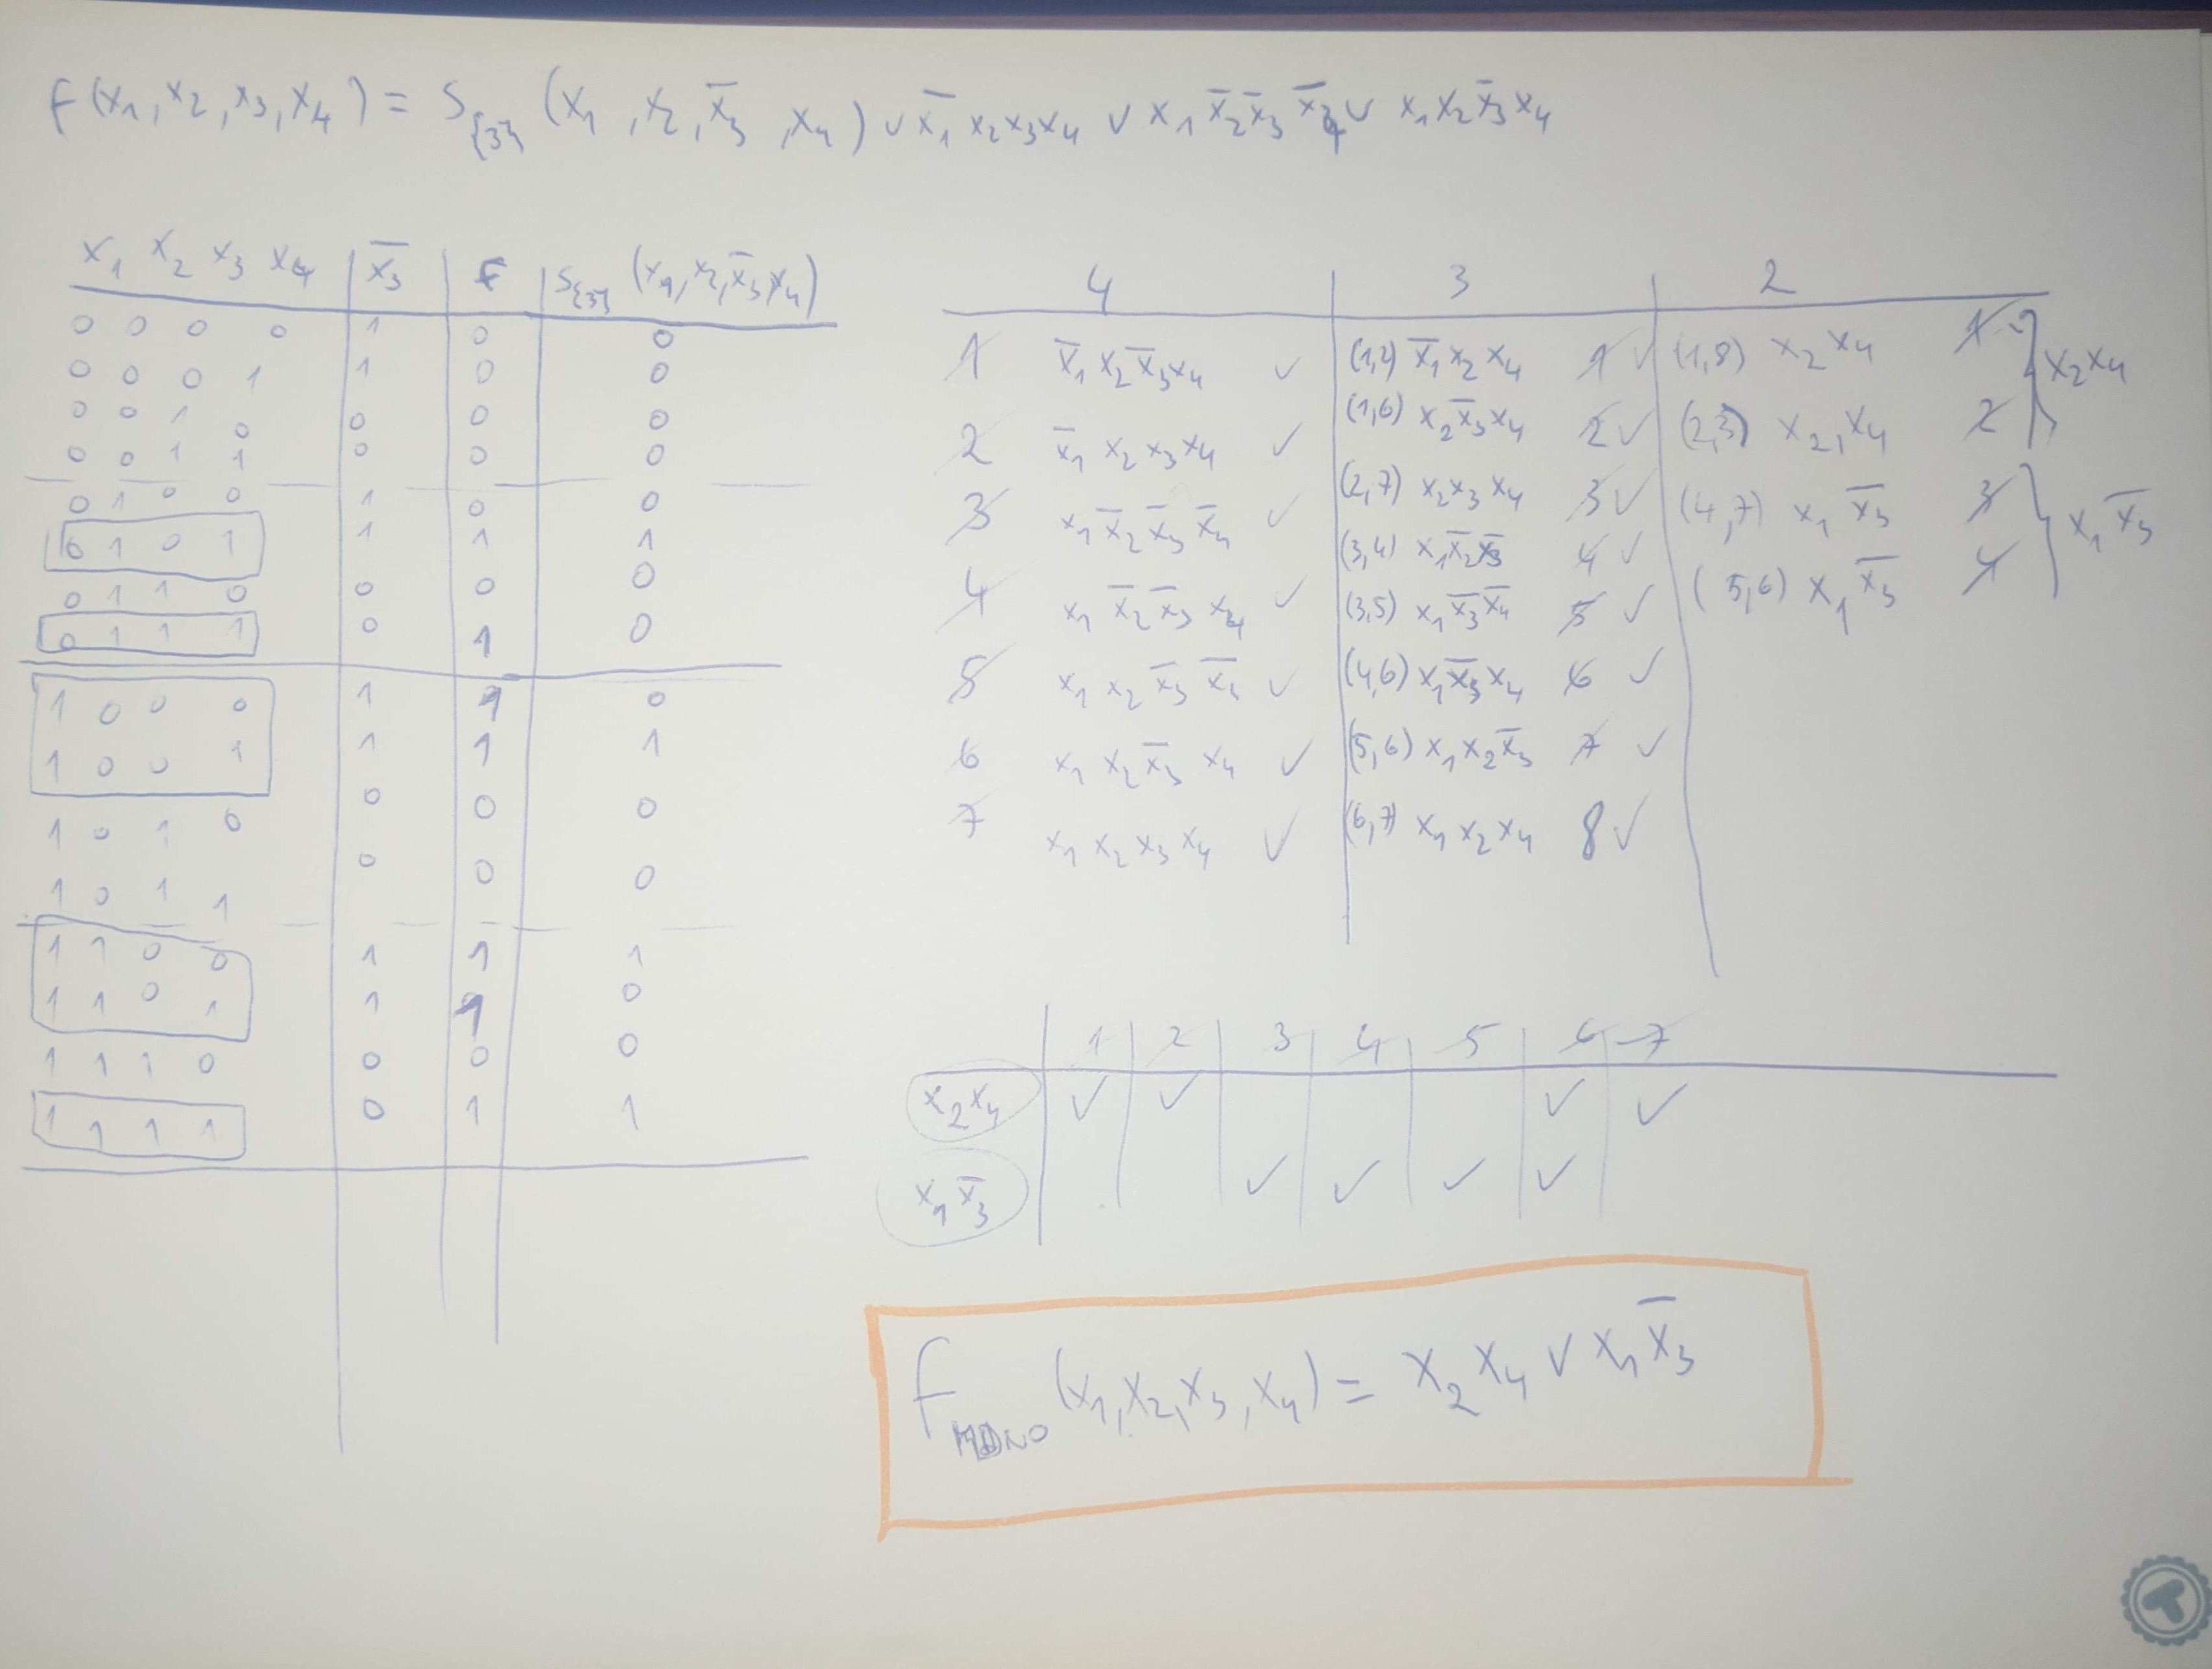 f(x₁,x₂,x₃,x₄) = S{3} (x₁,x₂,x̅₃,x₄) ∨ x̅₁x₂x₃x₄ ∨ x₁x̅₂x̅₃x̅₄ ∨ x₁x₂x̅₃x₄
x₁ x₂ x₃ x₄ | x̅₃ | f | S{3} (x₁,x₂,x̅₃,x₄)
0 0 0 0 | 1 | 0 | 0
0 0 0 1 | 1 | 0 | 0
0 0 1 0 | 0 | 0 | 0
0 0 1 1 | 0 | 0 | 0
0 1 0 0 | 1 | 0 | 0
0 1 0 1 | 1 | 1 | 1
0 1 1 0 | 0 | 0 | 0
0 1 1 1 | 0 | 1 | 0
1 0 0 0 | 1 | 1 | 0
1 0 0 1 | 1 | 1 | 1
1 0 1 0 | 0 | 0 | 0
1 0 1 1 | 0 | 0 | 0
1 1 0 0 | 1 | 1 | 1
1 1 0 1 | 1 | 1 | 0
1 1 1 0 | 0 | 0 | 0
1 1 1 1 | 0 | 1 | 1
4 | 3 | 2
1 x̅₁x₂x̅₃x₄ ✓ | (1,2) x̅₁x₂x₄ 1 ✓ | (1,8) x₂x₄ 1
2 x̅₁x₂x₃x₄ ✓ | (1,6) x₂x̅₃x₄ 2 ✓ | (2,3) x₂,x₄ 2 } x₂x₄
3 x₁x̅₂x̅₃x̅₄ ✓ | (2,7) x₂x₃x₄ 3 ✓ | (4,7) x₁x̅₃ 3
4 x₁x̅₂x̅₃x₄ ✓ | (3,4) x₁x̅₂x̅₃ 4 ✓ | (5,6) x₁x̅₃ 4 } x₁x̅₃
5 x₁x₂x̅₃x̅₄ ✓ | (3,5) x₁x̅₃x̅₄ 5 ✓
6 x₁x₂x̅₃x₄ ✓ | (4,6) x₁x̅₃x₄ 6 ✓
7 x₁x₂x₃x₄ ✓ | (5,6) x₁x₂x̅₃ 7 ✓
(6,7) x₁x₂x₄ 8 ✓
1 | 2 | 3 | 4 | 5 | 6 | 7
x₂x₄ | ✓ | ✓ | | | | ✓ | ✓
x₁x̅₃ | | | ✓ | ✓ | ✓ | ✓ |
f MDNO (x₁,x₂,x₃,x₄) = x₂x₄ ∨ x₁x̅₃